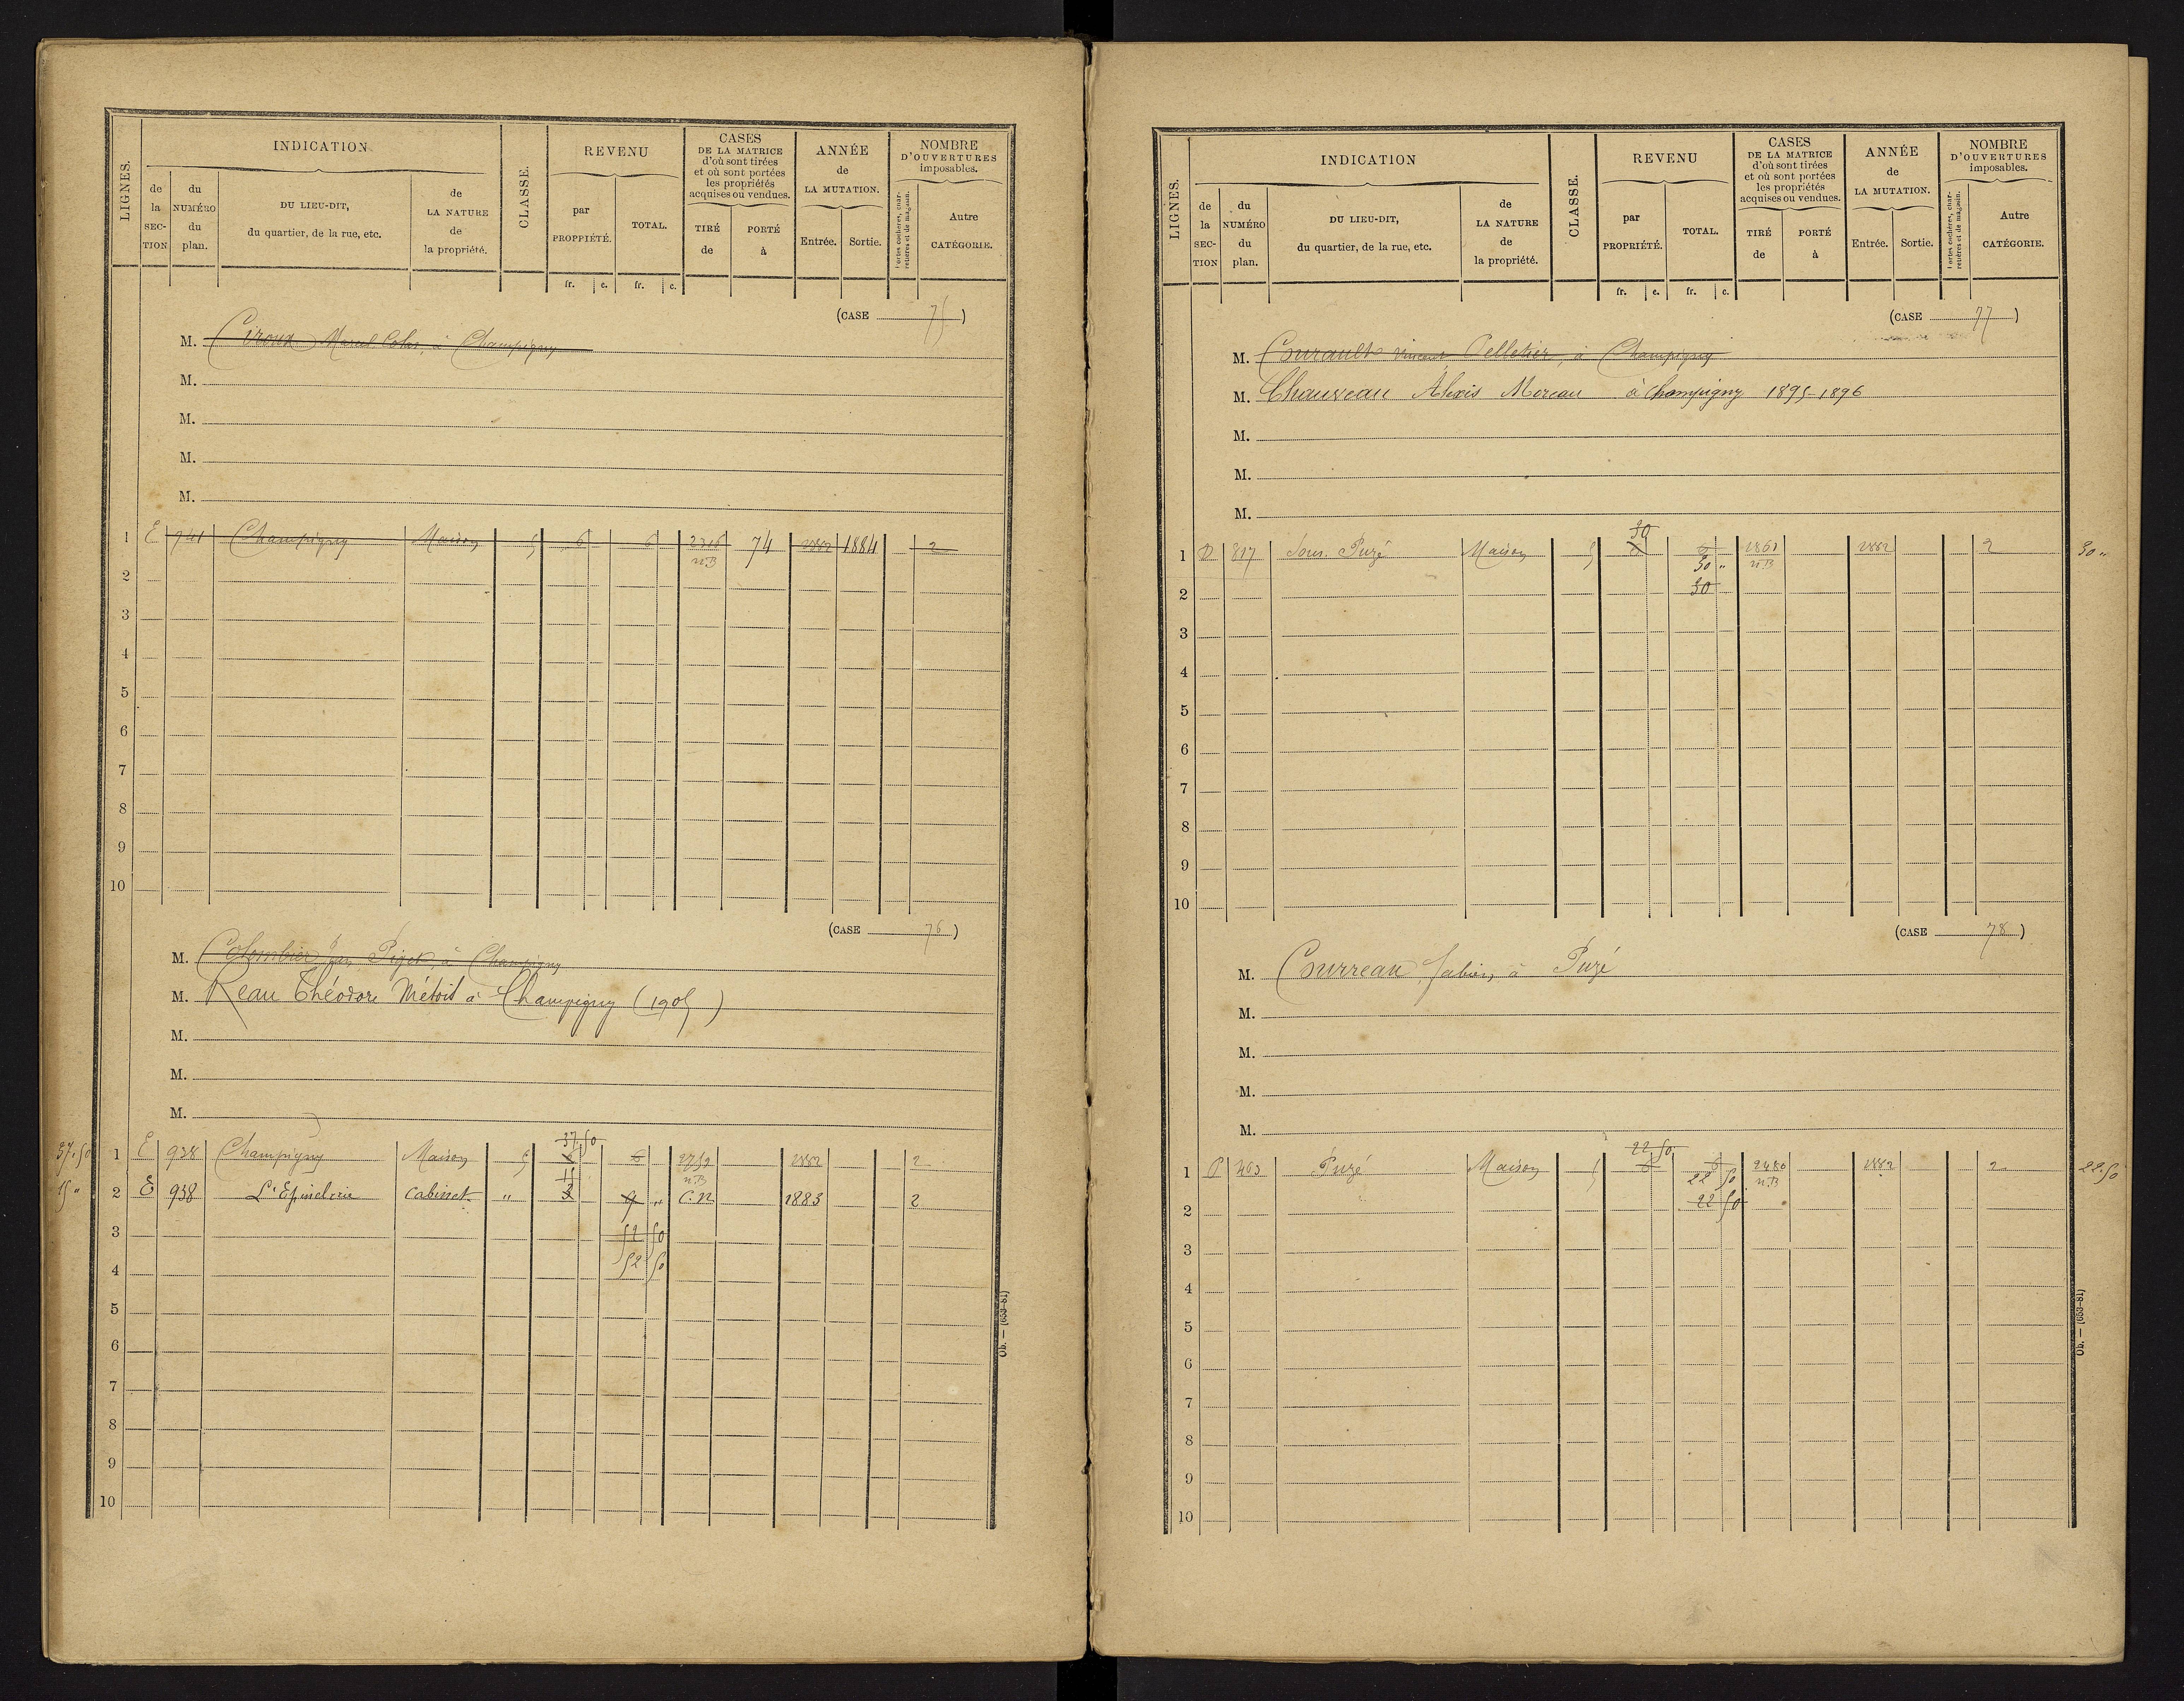 LIGNES.
INDICATION
de la SECTION
du NUMÉRO du plan.
DU LIEU-DIT, du quartier, de la rue, etc.
de LA NATURE de la propriété.
CLASSE.
REVENU
par PROPRIÉTÉ.
TOTAL.
fr. c. fr. c.
CASES DE LA MATRICE d'où sont tirées et où sont portées les propriétés acquises ou vendues.
TIRÉ de
PORTÉ à
ANNÉE de LA MUTATION.
Entrée. Sortie.
NOMBRE D'OUVERTURES imposables.
Portes cochères, charretières et de magasin.
Autre CATÉGORIE.
(CASE 75)
M. Ciroux Marcel Colas, à Champigny
M.
M.
M.
M.
1 E 741 Champigny Maison 5 6 6 74 1882 1884 2
n.B
2
3
4
5
6
7
8
9
10
(CASE 76)
M. Colombier Piget, à Champigny
M. Reau Théodore Métoit à Champigny (1905)
M.
M.
M.
37.50
37.50 1 E 938 Champigny Maison 5 6 6 2752 1882 2
15 n.B
15 " 2 E 938 L'Epinelrie Cabinet " 3 9 " C.n 1883 2
3 52 50
4 52 50
5
6
7
8
9
10
Ob. — (653-81)
LIGNES.
INDICATION
de la SECTION
du NUMÉRO du plan.
DU LIEU-DIT, du quartier, de la rue, etc.
de LA NATURE de la propriété.
CLASSE.
REVENU
par PROPRIÉTÉ.
TOTAL.
fr. c. fr. c.
CASES DE LA MATRICE d'où sont tirées et où sont portées les propriétés acquises ou vendues.
TIRÉ de
PORTÉ à
ANNÉE de LA MUTATION.
Entrée. Sortie.
NOMBRE D'OUVERTURES imposables.
Portes cochères, charretières et de magasin.
Autre CATÉGORIE.
(CASE 77)
M. Courault Vincent Pelletier, à Champigny
M. Chauveau Alexis Moreau à Champigny 1895-1896
M.
M.
M.
30
1 D 817 Sous Puzé Maison 5 1861 1882 2 30 "
30 " n.B
2 30
3
4
5
6
7
8
9
10
(CASE 78)
M. Courreau Fabien, à Puzé
M.
M.
M.
M.
22 50
1 D 463 Puzé Maison 5 6 6 2480 1882 2 22.50
22 50 n.B
2 22 50
3
4
5
6
7
8
9
10
Ob. — (653-81)